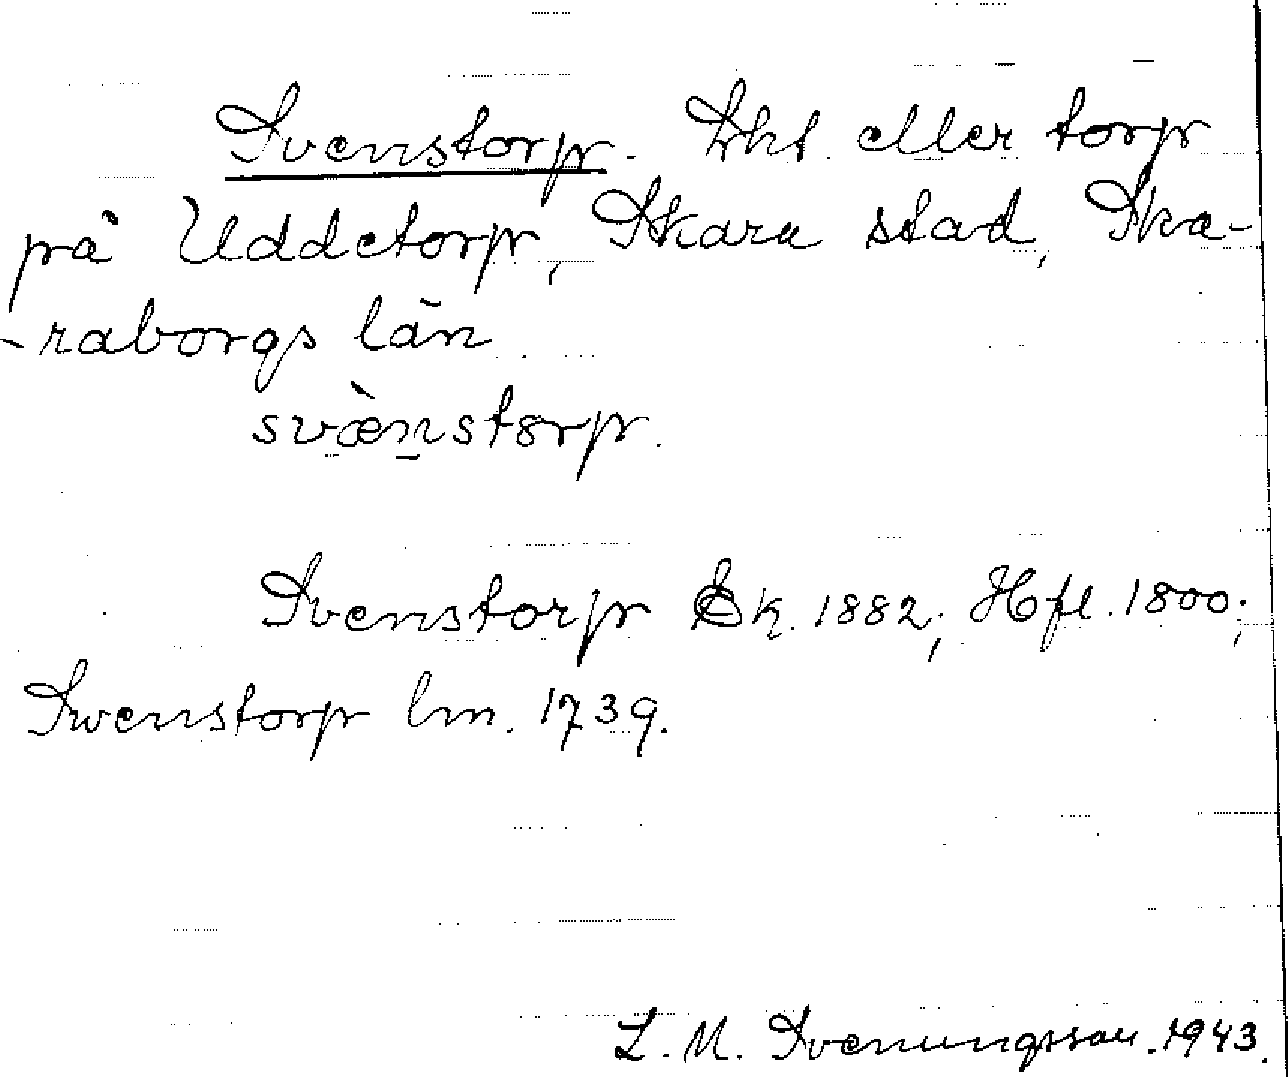 Svenstorp. Lht. eller torp
på Uddetorp, Skara stad, Ska-
-raborgs län
svæ̀nstorp.
Svenstorp Ek. 1882; Hfl. 1800;
Swenstorp lm. 1739.
L. M. Svenungsson. 1943.